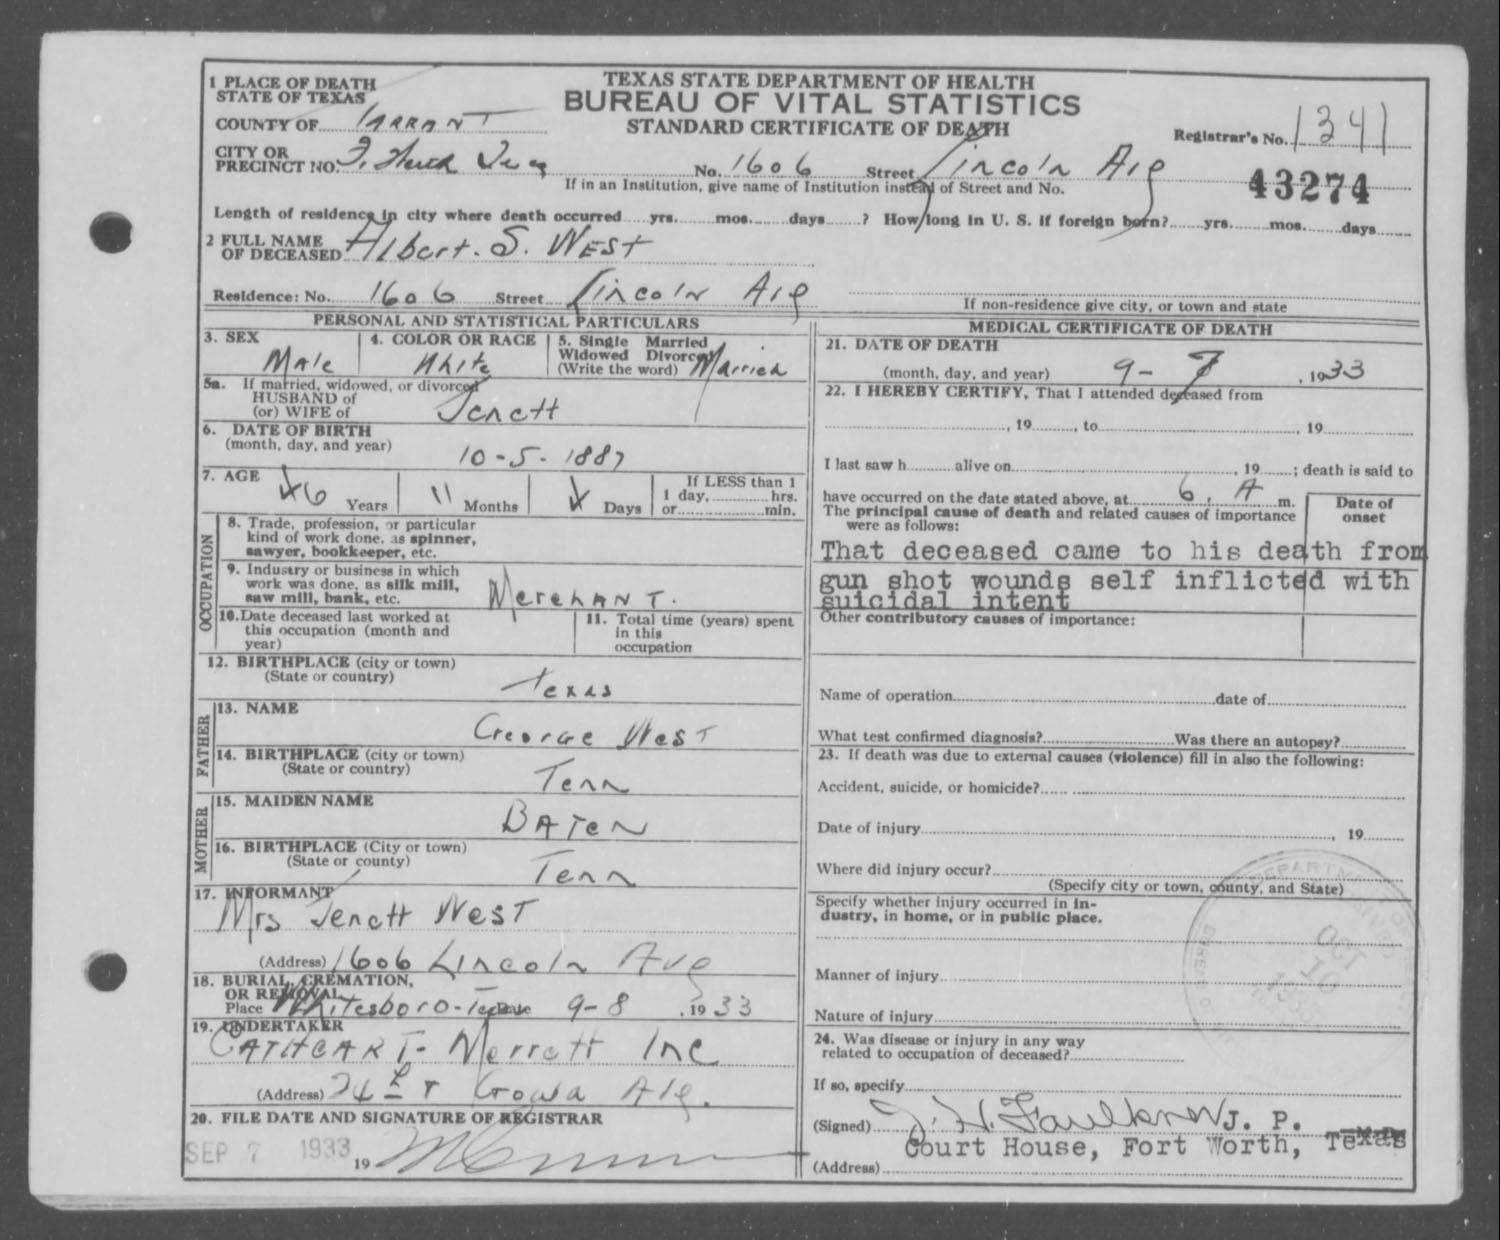 TEXAS STATE DEPARTMENT OF HEALTH
BUREAU OF VITAL STATISTICS
STANDARD CERTIFICATE OF DEATH
1 PLACE OF DEATH
STATE OF TEXAS
COUNTY OF TARRANT
Registrar's No. 1341
CITY OR
PRECINCT NO. No. 1606 Street Lincoln
If in an Institution, give name of Institution instead of Street and No.
43274
Length of residence in city where death occurred yrs. mos. days ? How long in U. S. if foreign born? yrs. mos. days
2 FULL NAME
OF DECEASED Albert. S. WEST
Residence: No. 1606 Street Lincoln
If non-residence give city, or town and state
PERSONAL AND STATISTICAL PARTICULARS
3. SEX
Male
4. COLOR OR RACE
White
5. Single Married
Widowed Divorced
(Write the word) Married
5a. If married, widowed, or divorced
HUSBAND of
(or) WIFE of Jenett
6. DATE OF BIRTH
(month, day, and year)
10-5-1887
7. AGE
46 Years 11 Months Days
If LESS than 1
1 day, hrs.
or min.
OCCUPATION
8. Trade, profession, or particular
kind of work done, as spinner,
sawyer, bookkeeper, etc.
9. Industry or business in which
work was done, as silk mill,
saw mill, bank, etc. MerchANT.
10. Date deceased last worked at
this occupation (month and
year)
11. Total time (years) spent
in this
occupation
12. BIRTHPLACE (city or town)
(State or country) Texas
FATHER
13. NAME
George West
14. BIRTHPLACE (city or town)
(State or country) Tenn
MOTHER
15. MAIDEN NAME
BATEN
16. BIRTHPLACE (City or town)
(State or county) Tenn
17. INFORMANT
Mrs Jenett West
(Address) 1606 Lincoln Ave
18. BURIAL, CREMATION,
OR REMOVAL
Place Whitesboro-Texas Date 9-8, 1933
19. UNDERTAKER
CATHCART- Merrett Inc
(Address)
20. FILE DATE AND SIGNATURE OF REGISTRAR
SEP 7 1933 19
MEDICAL CERTIFICATE OF DEATH
21. DATE OF DEATH
(month, day, and year) 9-7, 1933
22. I HEREBY CERTIFY, That I attended deceased from
, 19 , to , 19
I last saw h alive on , 19 ; death is said to
have occurred on the date stated above, at 6, A m.
The principal cause of death and related causes of importance
were as follows:
Date of
onset
That deceased came to his death from
gun shot wounds self inflicted with
suicidal intent
Other contributory causes of importance:
Name of operation date of
What test confirmed diagnosis? Was there an autopsy?
23. If death was due to external causes (violence) fill in also the following:
Accident, suicide, or homicide?
Date of injury , 19
Where did injury occur?
(Specify city or town, county, and State)
Specify whether injury occurred in in-
dustry, in home, or in public place.
Manner of injury
Nature of injury
24. Was disease or injury in any way
related to occupation of deceased?
If so, specify
(Signed) J. H. Faulkner J. P.
Court House, Fort Worth, Texas
(Address)
OCT
10
1933